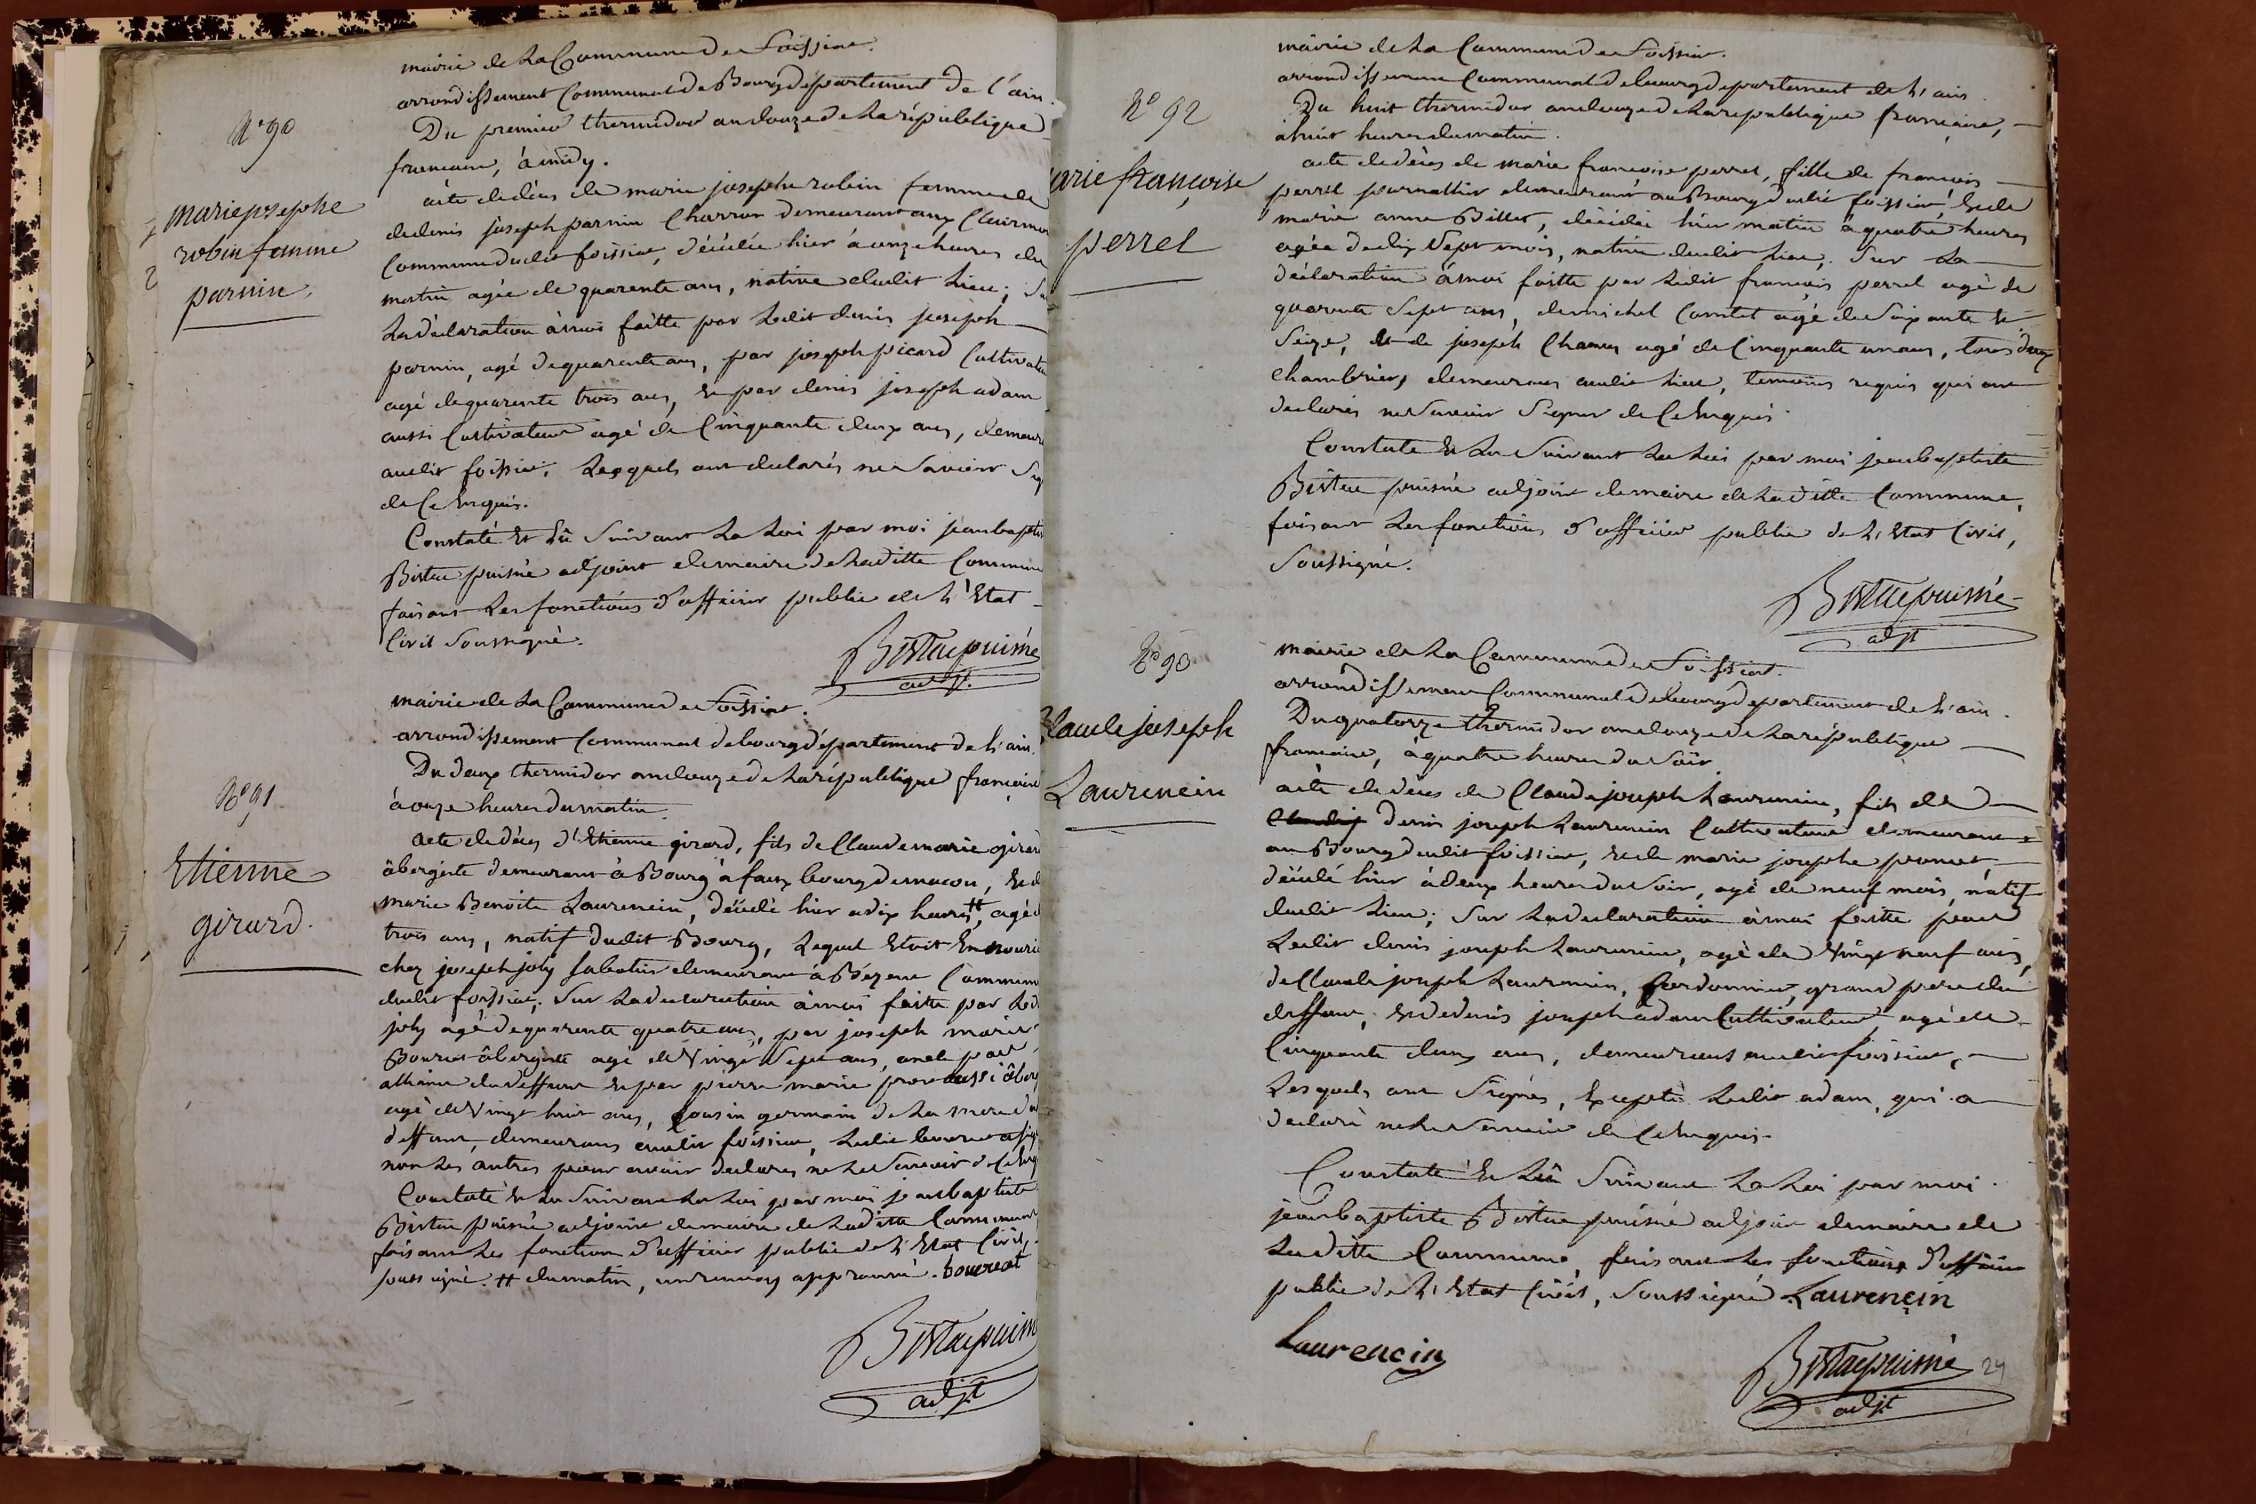 N° 90
marie josephe
robin femme
parnin.
mairie de La Commune de foissiat.
arrondissement Communal de Bourg département de l'ain.
Du premier thermidor an douze de La république
francaise, à midy.
acte de décès de marie josephe robin femme de
de denis joseph parnin Charron demeurant aux
Commune dudit foissiat, décédée hier à onze heures du
matin agée de quarente ans, native dudit Lieu; Su
La déclaration à moi faitte par Ledit denis joseph
parnin, agé de quarente ans, par joseph picard Cultivate
agé de quarente trois ans, et par denis joseph adam
aussi Cultivateur agé de Cinquante deux ans, demeur
audit foissiat, Lesquels ont declarés ne Savoir Sig
de Ce Enquis.
Constaté et Lû Suivant La Loi par moi jeanbaptis
Bistac puisné adjoint de maire de Laditte Commune
faisant Les fonctions d'officier public de L'Etat
Civil Soussigné.
Bistac puisné
adjt.
N° 91
Etienne
girard.
mairie de La Commune de foissiat.
arrondissement Communal de bourg département de L'ain.
Du deux thermidor an douze de La république françaisse
à onze heures du matin.
acte de décès d'Etienne girard, fils de Claude marie girard
âbergiste demeurant à Bourg à faux bourg de macon, Et d
marie Benoite Laurencin, décédé hier a dix heures #, agé d
trois ans, natif dudit Bourg, Lequel Etoit En nouric
chez joseph joly Sabotier demeurant à Commun
dudit foissiat; Sur La declaration à moi faitte par Led
joly agé de quarente quatre ans, par joseph marie
Bourcet âbergiste agé de Vingt Sept ans, oncle par
alliance du deffunt et par pierre marie aussi âber
agé de Vingt huit ans, Cousin germain de La mere du
deffunt demeurans audit foissiat, Ledit bourcet a sig
non Les autres pour avoir declarés ne Le Savoir de Ce Enq
Constaté et Lu Suivant La Loi par moi jeanbaptiste
Bistac puisné adjoint de maire de Laditte Commune
faisant Les fonction d'officier public de L'Etat Civil,
soussigné. # du matin, un renvoy approuvé. bourcet
Bistac puisné
adjt
N° 92
arie françoise
perret
mairie de La Commune de foissiat.
arrondissement Communal de bourg departement de L'ain.
Du huit thermidor an douze de La republique francaise,
à huit heures du matin.
acte de décès de marie francoise perret, fille de francois
perret journallier demeurant au Bourg dudit foissiat, Et de
marie anne Billet, décédée hier matin à quatre heures
agée de dix Sept mois, native dudit Lieu; Sur La
déclaration à moi faitte par Ledit francois perret agé de
quarente Sept ans, de michel Comtet agé de Soixante et
Seize, et de joseph Chanel agé de Cinquante un ans,
demeurans audit Lieu, temoins requis qui ont
declarés ne Savoir Signer de Ce Enquis.
Constate et Lu Suivant La Loi par moi jeanbaptiste
Bistac puisné adjoint de maire de Laditte Commune,
faisant Les fonctions d'officier public de L'Etat Civil,
Soussigné.
Bistac puisné
adjt
N° 93
Claude joseph
Laurencin
mairie de La Commune de foissiat.
arrondissement Communal de bourg departement de L'ain.
Du quatorze thermidor an douze de La république
francaise, à quatre heures du Soir.
acte de décès de Claude joseph Laurencin, fils de
denis joseph Laurencin Cultivateur demeurant
au Bourg dudit foissiat, Et de marie josephe poncet,
décédé hier à deux heures du Soir, agé de neuf mois, natif
dudit Lieu; Sur La declaration à moi faitte par
Ledit denis joseph Laurencin, agé de Vingt neuf ans,
de Claude joseph Laurencin, Cordonnier, grand pere du
deffunt, Et de denis joseph adam Cultivateur agé de
Cinquante deux ans, demeurans audit foissiat,
Lesquels ont Signés, Excepté Ledit adam, qui a
declaré ne Le Savoir de Ce Enquis.
Constaté et Lû Suivant La Loi par moi
jeanbaptiste Bistac puisné adjoint de maire de
Laditte Commune, faisant Les fonctions d'officier
public de L'Etat Civil, Soussigné Laurencin
Laurencin
Bistac puisné
adjt
24